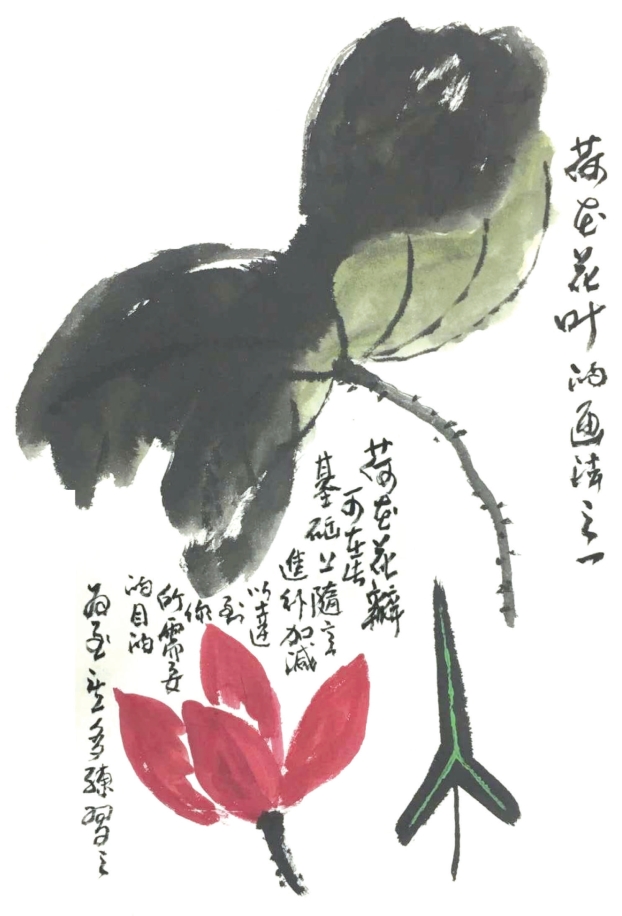 荷花花叶的画法之一
荷花花瓣
可在此
基础上随意
进行加减
以达
到
你
所需要
的目的
为至要多练习之